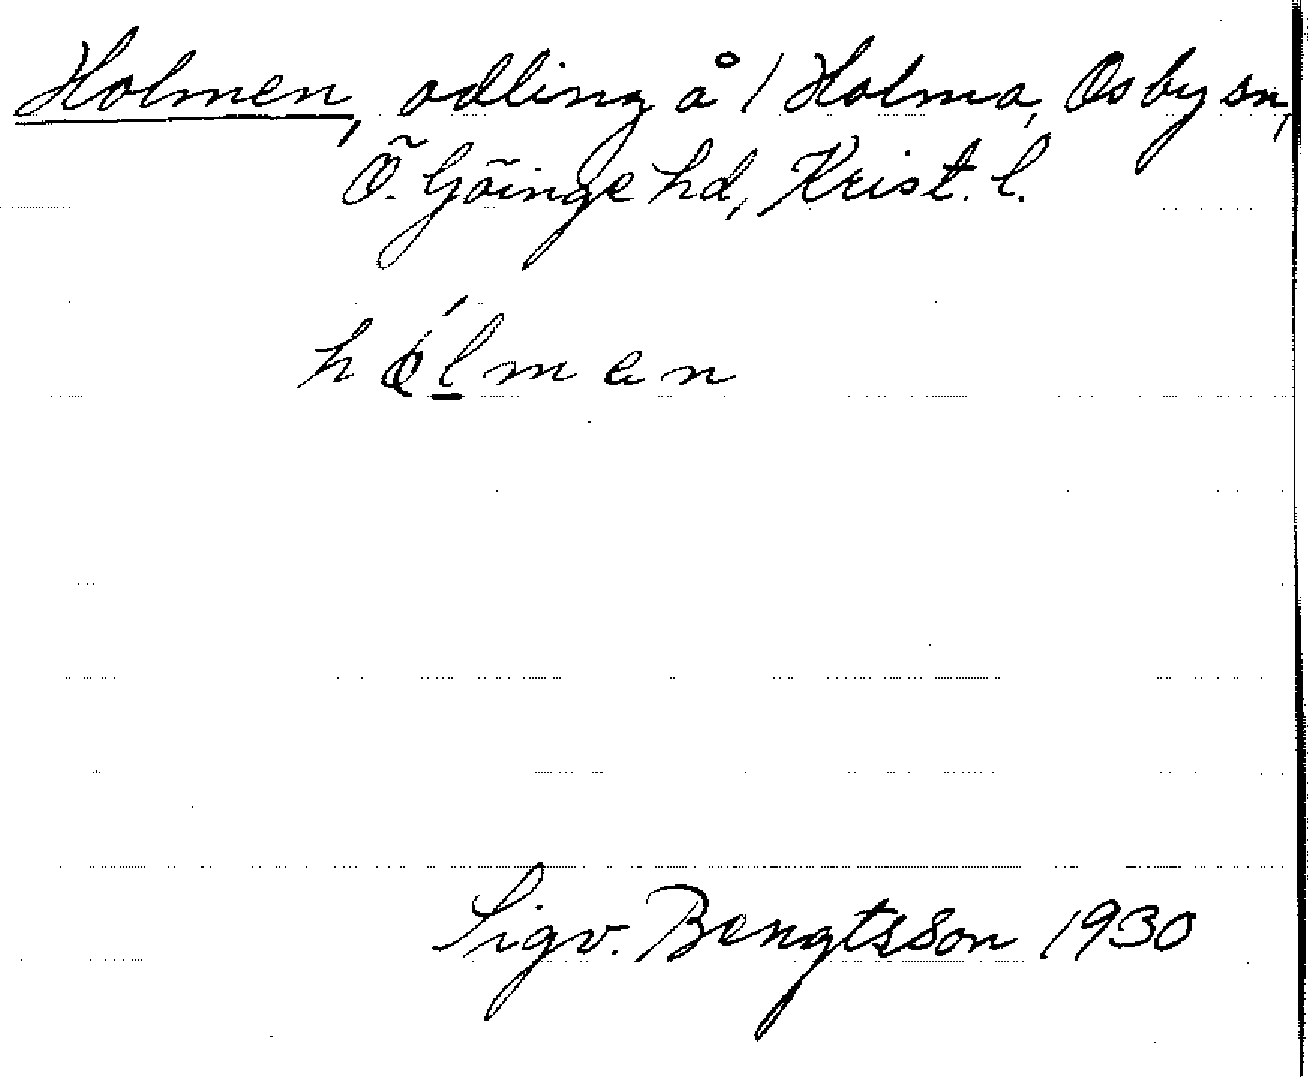 Holmen, odling å 1 Holma, Osby sn,
Ö. Göinge hd, Krist. l.
hǫ́lmen
Sigv. Bengtsson 1930